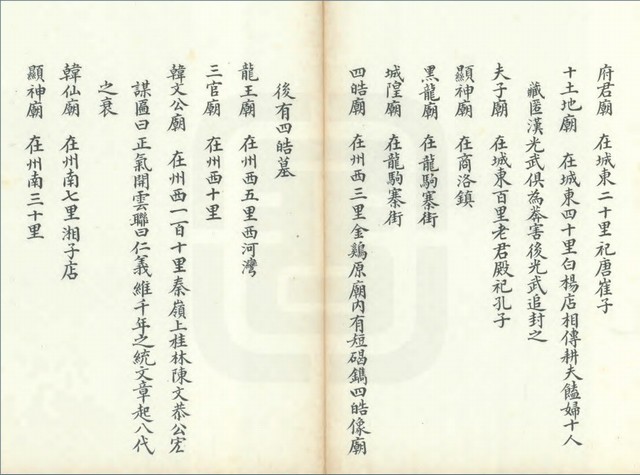 府君廟 在城東二十里祀唐崔子
十土地廟 在城東四十里白楊店相傳耕夫饁婦十人
藏匿漢光武俱為莽害後光武追封之
夫子廟 在城東百里老君殿祀孔子
顯神廟 在商洛鎮
黑龍廟 在龍駒寨街
城隍廟 在龍駒寨街
四皓廟 在州西三里金鷄原廟內有短碣鐫四皓像廟
後有四皓墓
龍王廟 在州西五里西河灣
三官廟 在州西十里
韓文公廟 在州西一百十里秦嶺上桂林陳文恭公宏
謀匾曰正氣開雲聯曰仁義維千年之統文章起八代
之衰
韓仙廟 在州南七里湘子店
顯神廟 在州南三十里